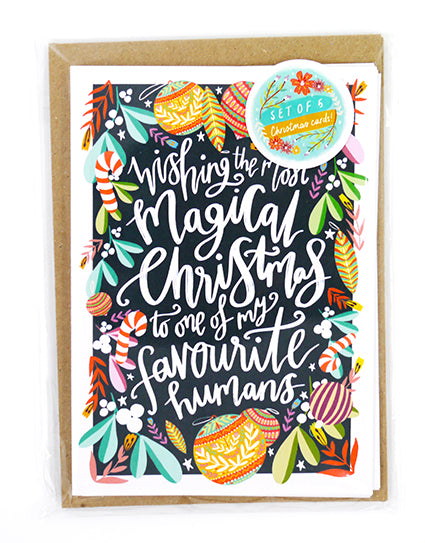 SET OF 6
Christmas cards!
Wishing the most
magical
Christmas
to one of my
favourite
humans